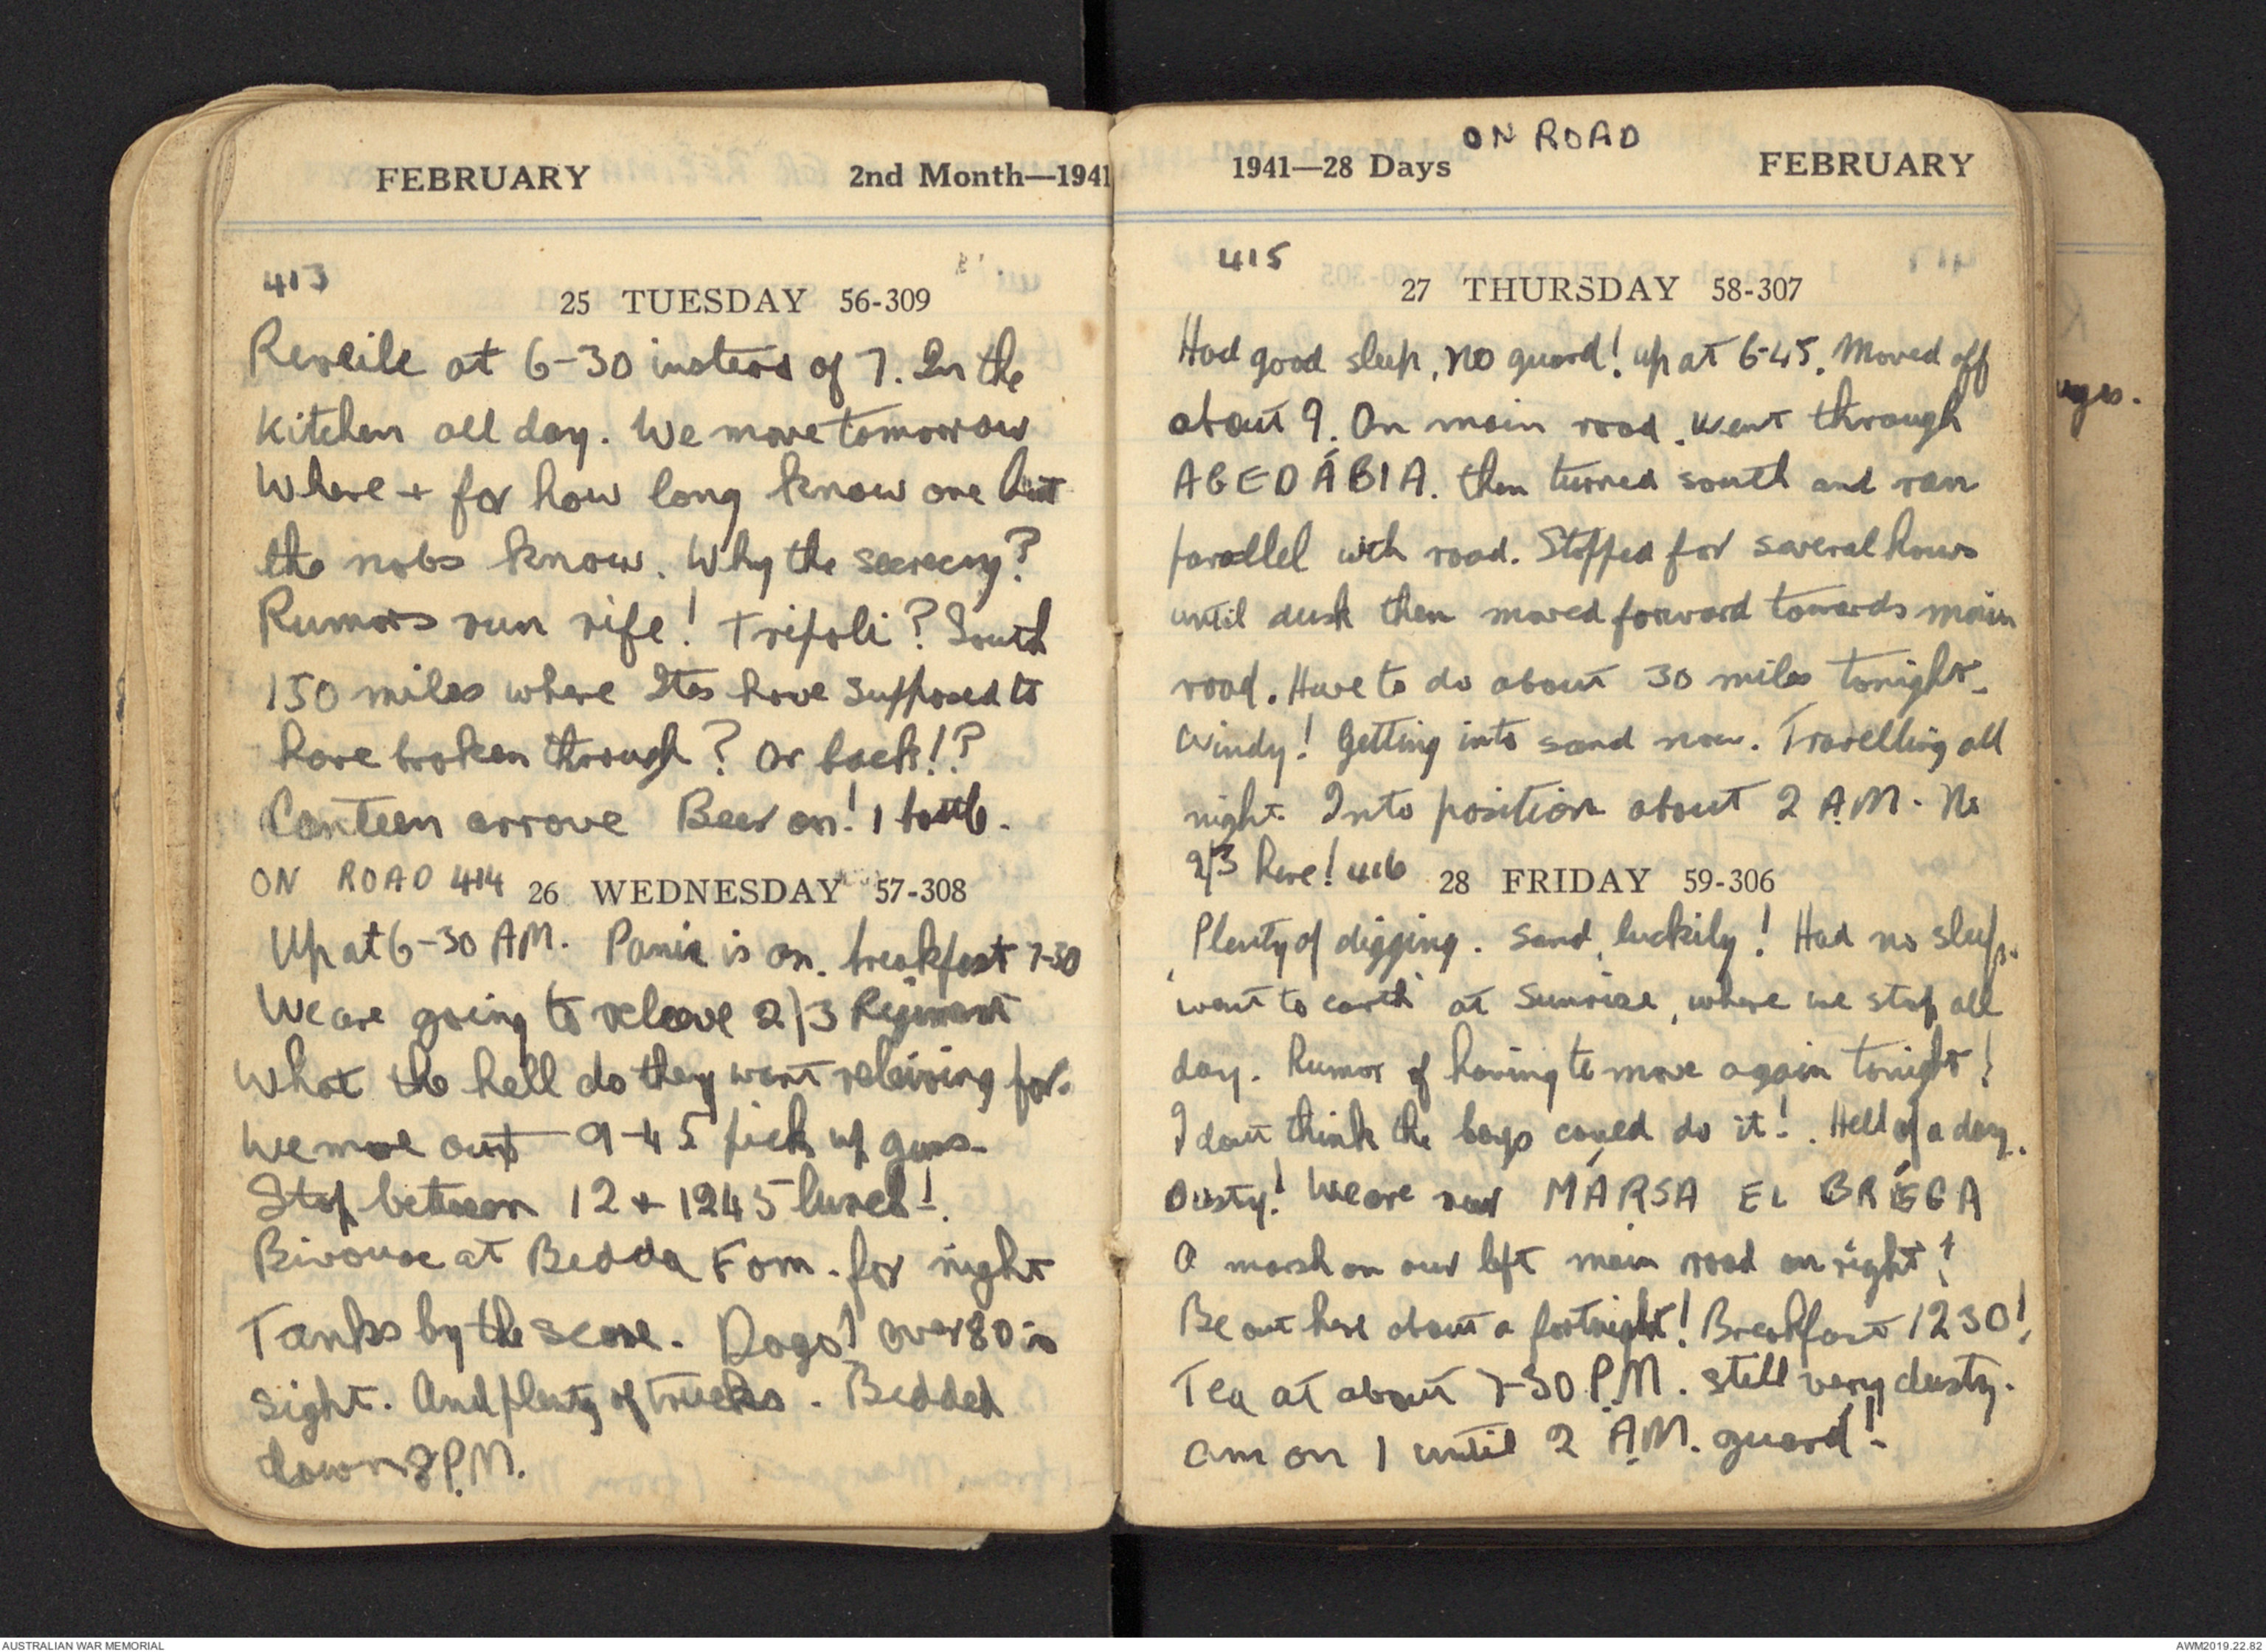 FEBRUARY 2nd Month—1941
413
25 TUESDAY 56-309
Reveile at 6-30 instead of 7. In the
kitchen all day. We move tomorrow
Where + for how long know one but
the nobs know. Why the secrecy?
Rumors run rife! Tripoli? South
150 miles where Ites have supposed to
have broken through? Or back!?
Canteen arrove Beer on! 1 bottle.
ON ROAD 414
26 WEDNESDAY 57-308
Up at 6-30 AM. Panic is on. breakfast 7-30
We are going to releave 2/3 Regiment
What the hell do they want releiving for.
We move out 9-45 pick up guns.
Stop between 12 + 1245 lunch!.
Bivouac at Bedda Fom. for night
Tanks by the score. Dogs! over 80 in
sight. And plenty of trucks. Bedded
down 8 P.M.
ON ROAD
1941—28 Days FEBRUARY
415
27 THURSDAY 58-307
Had good sleep, no guard! up at 6-45. Moved off
about 9. On main road. Went through
AGEDÁBIA. then turned south and ran
parallel with road. Stopped for several hours
until dusk then moved forward towards main
road. Have to do about 30 miles tonight.
Windy! Getting into sand now. Travelling all
night. Into position about 2 A.M. No
2/3 here! 416
28 FRIDAY 59-306
Plenty of digging. Sand, luckily! Had no sleep.
'went to earth' at Sunrise, where we stop all
day. Rumor of having to move again tonight!
I dont think the boys could do it!. Hell of a day.
Dusty! We are near MÁRSA EL BRÉGA
A marsh on our left main road on right!
Be out here about a fortnight! Breakfast 1230!
Tea at about 7-30 P.M. still very dusty.
am on 1 until 2 A.M. guard!
AUSTRALIAN WAR MEMORIAL
AWM2019.22.82